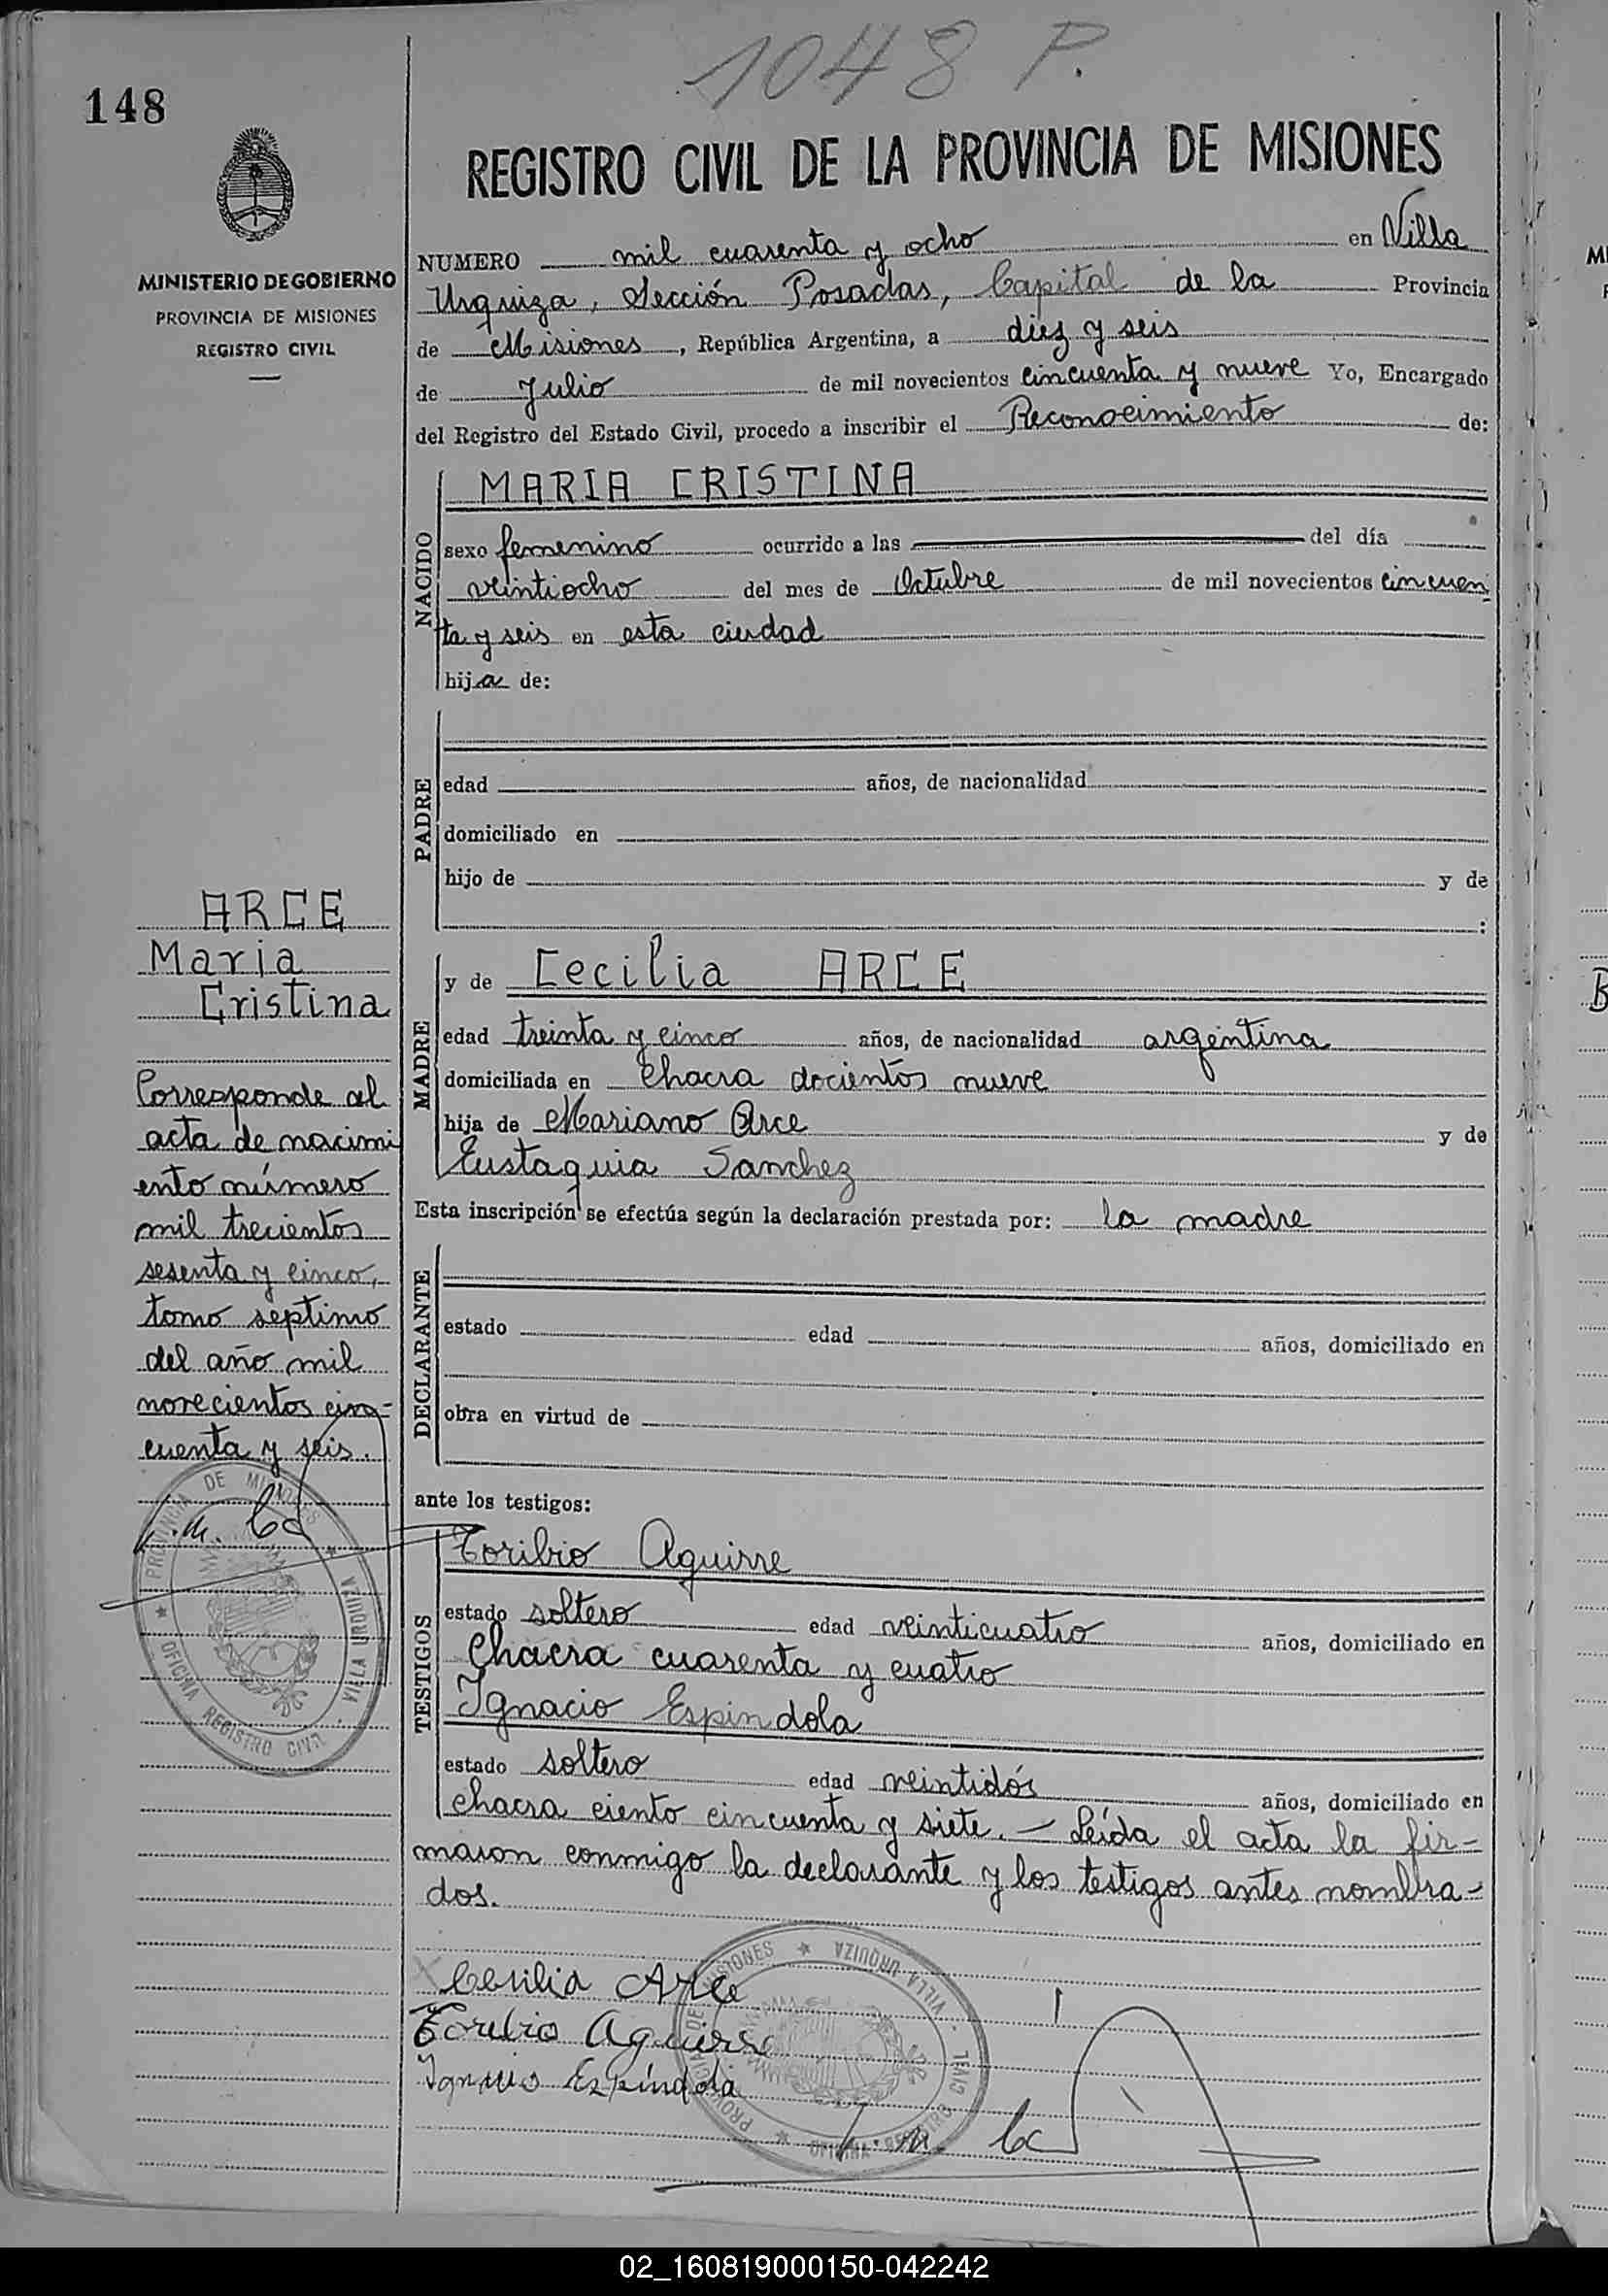 1048 P.
148
REGISTRO CIVIL DE LA PROVINCIA DE MISIONES
MINISTERIO DE GOBIERNO
PROVINCIA DE MISIONES
REGISTRO CIVIL
NUMERO mil cuarenta y ocho en Villa
Urquiza, Sección Posadas, Capital de la Provincia
de Misiones, República Argentina, a diez y seis
de Julio de mil novecientos cincuenta y nueve Yo, Encargado
del Registro del Estado Civil, procedo a inscribir el Reconocimiento de:
NACIDO
MARIA CRISTINA
sexo femenino ocurrido a las del día
veintiocho del mes de Octubre de mil novecientos cincuen
ta y seis en esta ciudad
hija de:
PADRE
edad años, de nacionalidad
domiciliado en
hijo de y de
:
MADRE
y de Cecilia ARCE
edad treinta y cinco años, de nacionalidad argentina
domiciliada en Chacra docientos nueve
hija de Mariano Arce y de
Eustaquia Sanchez
Esta inscripción se efectúa según la declaración prestada por: la madre
DECLARANTE
estado edad años, domiciliado en
obra en virtud de
ante los testigos:
TESTIGOS
Toribio Aguirre
estado soltero edad veinticuatro años, domiciliado en
Chacra cuarenta y cuatro
Ignacio Espindola
estado soltero edad veintidós años, domiciliado en
chacra ciento cincuenta y siete. — Leída el acta la fir-
maron conmigo la declarante y los testigos antes nombra-
dos.
Cecilia Arce
Toribio Aguirre
Ignacio Espíndola
PROVINCIA DE MISIONES ★ VILLA URQUIZA ★ OFICINA REGISTRO CIVIL
ARCE
Maria
Cristina
Corresponde al
acta de nacimi
ento número
mil trecientos
sesenta y cinco,
tomo septimo
del año mil
novecientos cin-
cuenta y seis.
PROVINCIA DE MISIONES ★ VILLA URQUIZA ★ OFICINA REGISTRO CIVIL
02_160819000150-042242